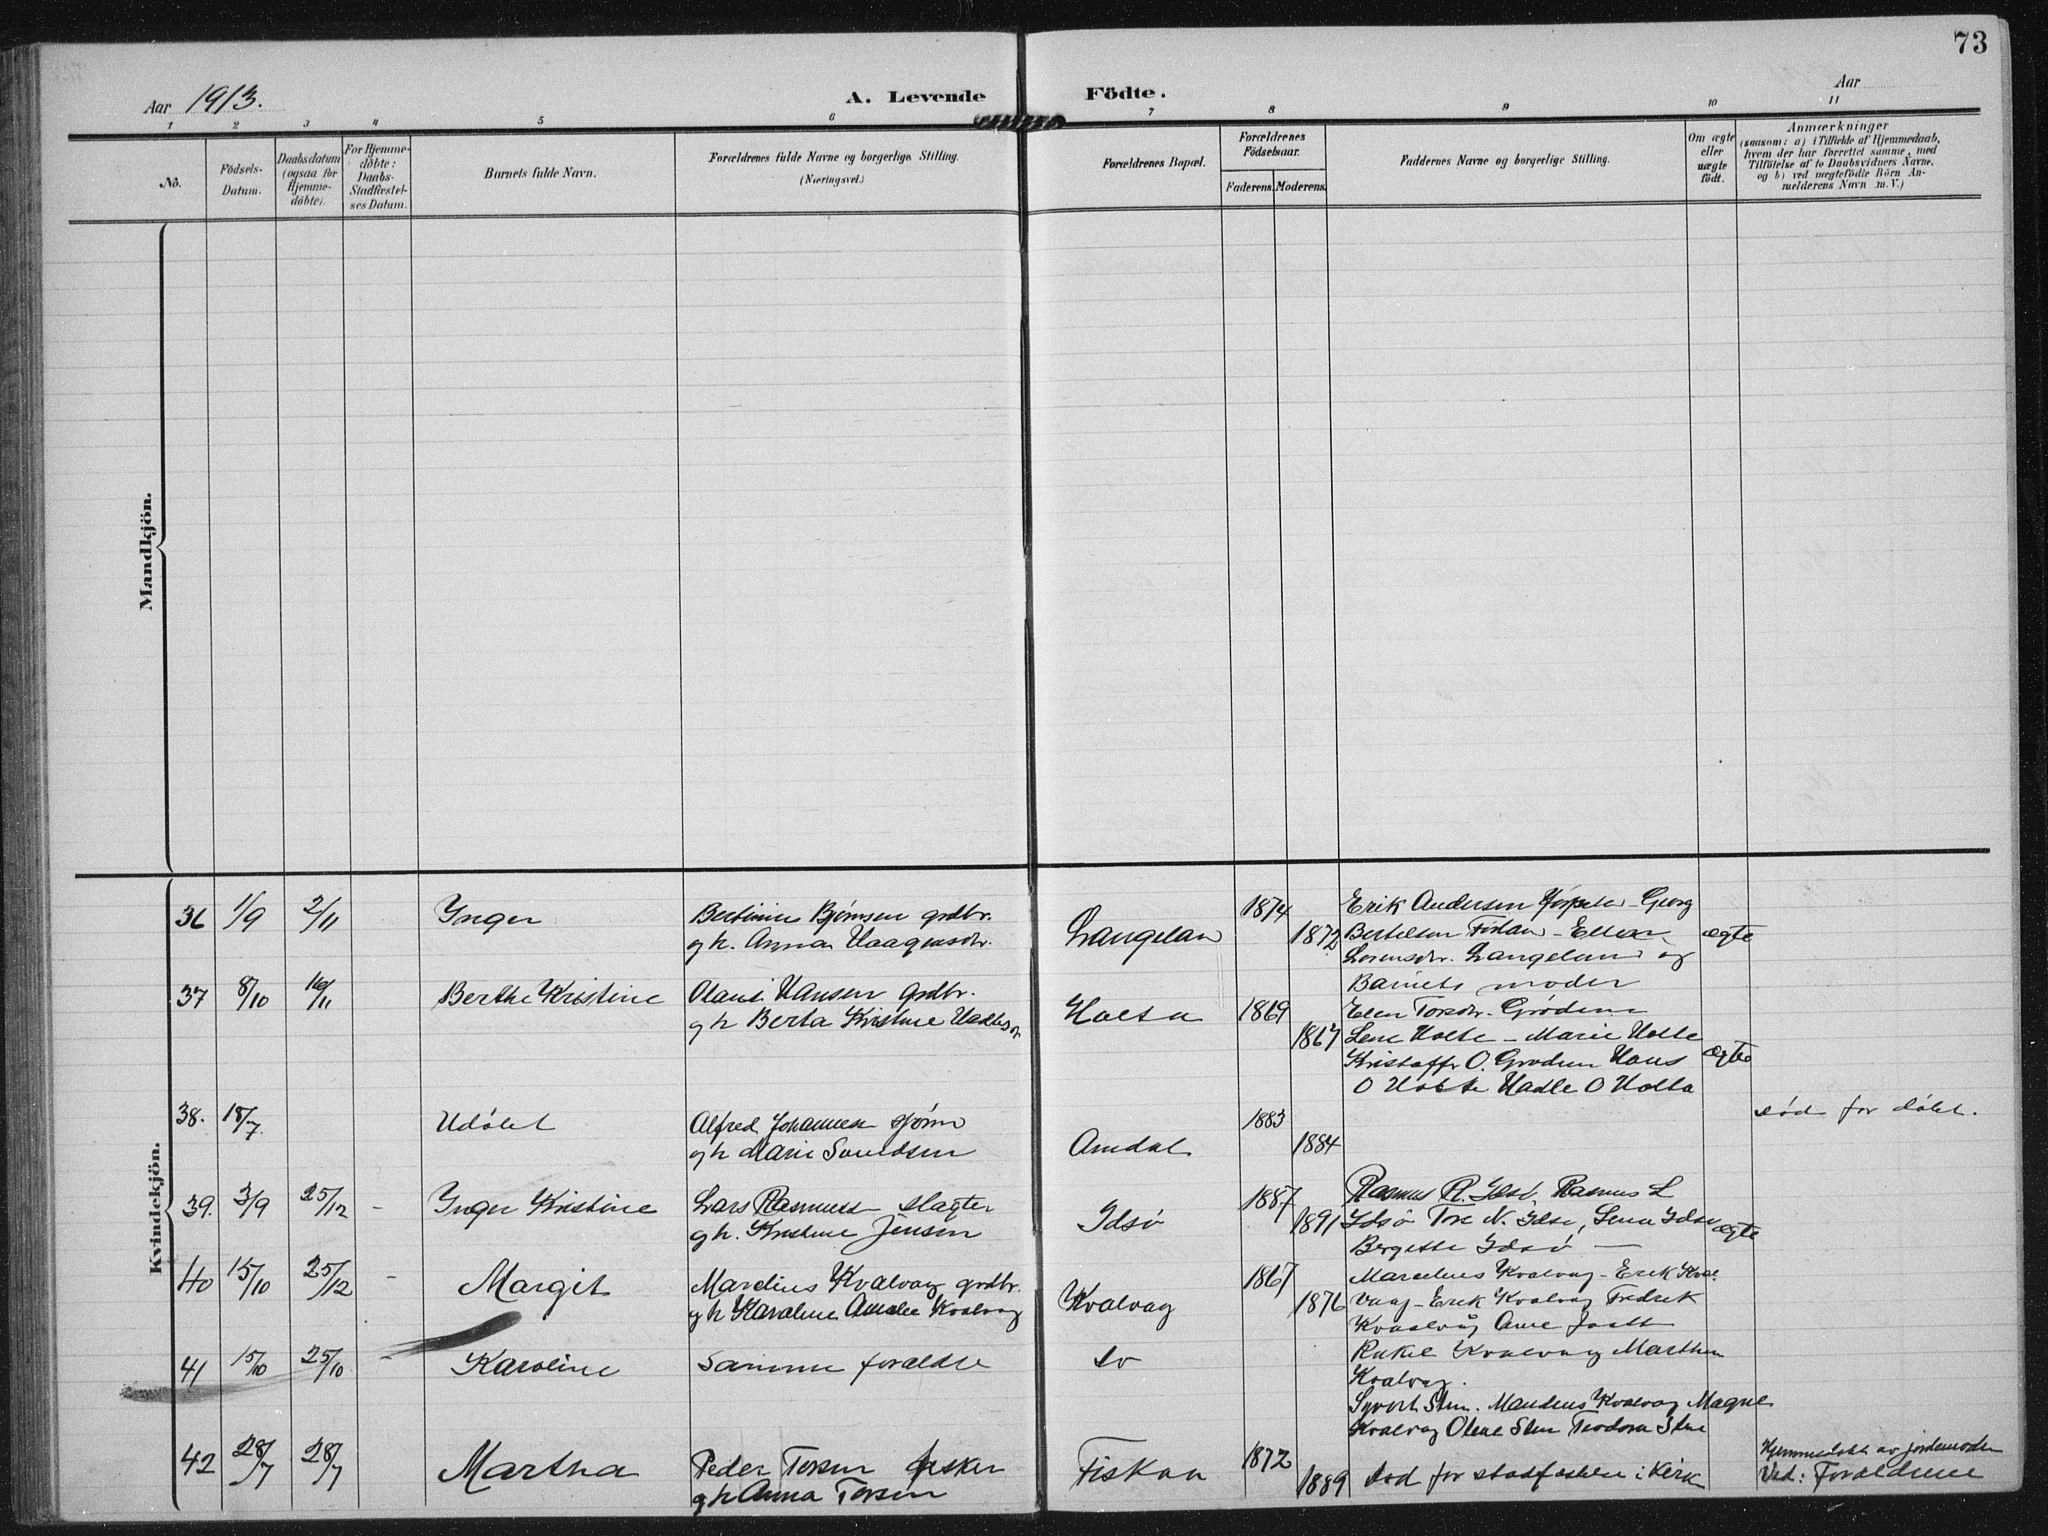 73
Aar 1913.
A. Levende Födte.
Aar
1 2 3 4 5 6 7 8 9 10 11
No.
Födsels-
Datum.
Daabsdatum
(ogsaa for
Hjemme-
döbte).
For Hjemme-
döbte:
Daabs-
Stadfæstel-
ses Datum.
Barnets fulde Navn.
Forældrenes fulde Navne og borgerlige Stilling.
(Næringsvei.)
Forældrenes Bopæl.
Forældrenes
Födselsaar.
Faderens. Moderens.
Faddernes Navne og borgerlige Stilling.
Om ægte
eller
uægte
födt.
Anmærkninger
(saasom: a) i Tilfælde af Hjemmedaab,
hvem der har forrettet samme, med
Tilföielse af to Daabsvidners Navne.
og b) ved uægtefödte Börn An-
melderens Navn m.V.)
Mandkjön.
Kvindekjön.
36 1/9 2/11 Inger
Bertinius Bjørnsen grdbr.
og h. Anna Haagensdtr.
Langeland
1874
1872
Erik Andersen Georg
Bertelsen Ellen
Lorensdtr. Langeland og
Barnets moder
ægte
37 8/10 16/11 Berthe Kristine
Olaus Hansen grdbr.
og h Berta Kristine
Holta
1869
1867
Elen Torsdtr. Grødem
Lene Holte - Marie Holte
Kristoffr O. Grødem Hans
O Holte Hadle O Holta
ægte
38. 18/7. Udøbt
Alfred Johannesen
og h Marie Svendsen
Amdal
1883
1884
død for døbt.
39. 3/9 25/12 - Inger Kristine
Lars Rasmussen slagter
og h. Kristine Jensen
Idsø
1887
1891
Rasmus R. Idsø, Rasmus L
Idsø Tore N. Idsø, Lena Idsø
Bergitte Idsø
ægte
40 15/10 25/12 - Margit
Mardius Kvalvag grdbr.
og h Karoline Amalie Kvalvag
Kvalvag
1867
1876
Marcelius Kvalvag - Erik Kval
vaag - Erik Kvalvag Fredrik
Kvalvåg Ane
41 15/10 25/10 - Karoline
Samme foraldre
do
Rakel Kvalvag Martha
Kvalvag.
Syvert Sten. Mardius Kvalvag Magne
Kvalvag Olene Sten Teodora Stene
42 28/7 28/7 Martha
Peder Torsen fisker
og h Anna Torsen
Fiskaa
1872
1889
død for stadfæstelse i Kirk
Hjemmedøbt av jordmoder
Ved: Foraldrene